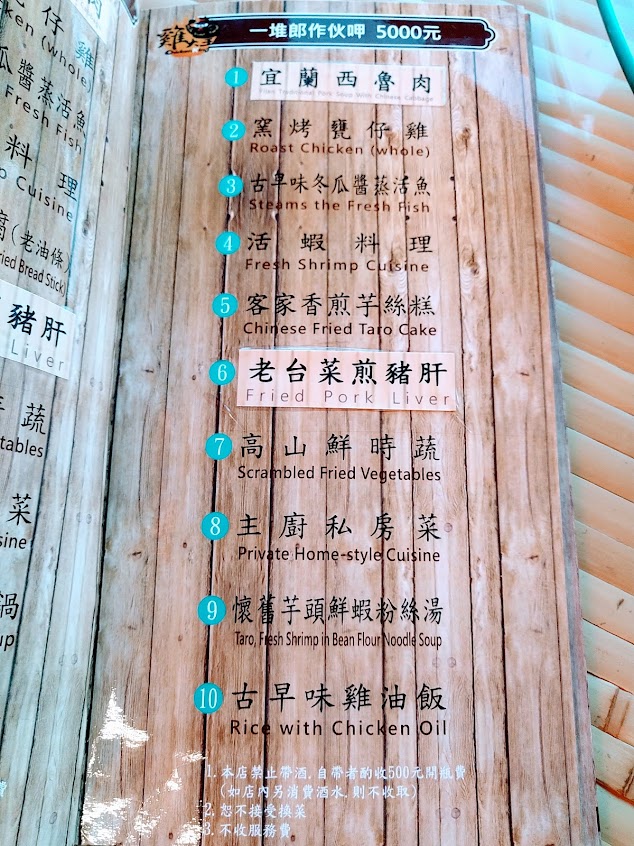 肉
仔雞
cken (whole)
瓜醬蒸活魚
Fresh Fish
料理
p Cuisine
腐(老油條)
ried Bread Stick)
豬肝
Liver
蔬
tables
菜
sine
鍋
up
雞
一堆郎作伙呷 5000元
1 宜蘭西魯肉
2 窯烤甕仔雞
Roast Chicken (whole)
3 古早味冬瓜醬蒸活魚
Steams the Fresh Fish
4 活蝦料理
Fresh Shrimp Cuisine
5 客家香煎芋絲糕
Chinese Fried Taro Cake
6 老台菜煎豬肝
Fried Pork Liver
7 高山鮮時蔬
Scrambled Fried Vegetables
8 主廚私房菜
Private Home-style Cuisine
9 懷舊芋頭鮮蝦粉絲湯
Taro, Fresh Shrimp in Bean Flour Noodle Soup
10 古早味雞油飯
Rice with Chicken Oil
1. 本店禁止帶酒,自帶者酌收500元開瓶費
(如店內另消費酒水,則不收取)
2. 恕不接受換菜
3. 不收服務費